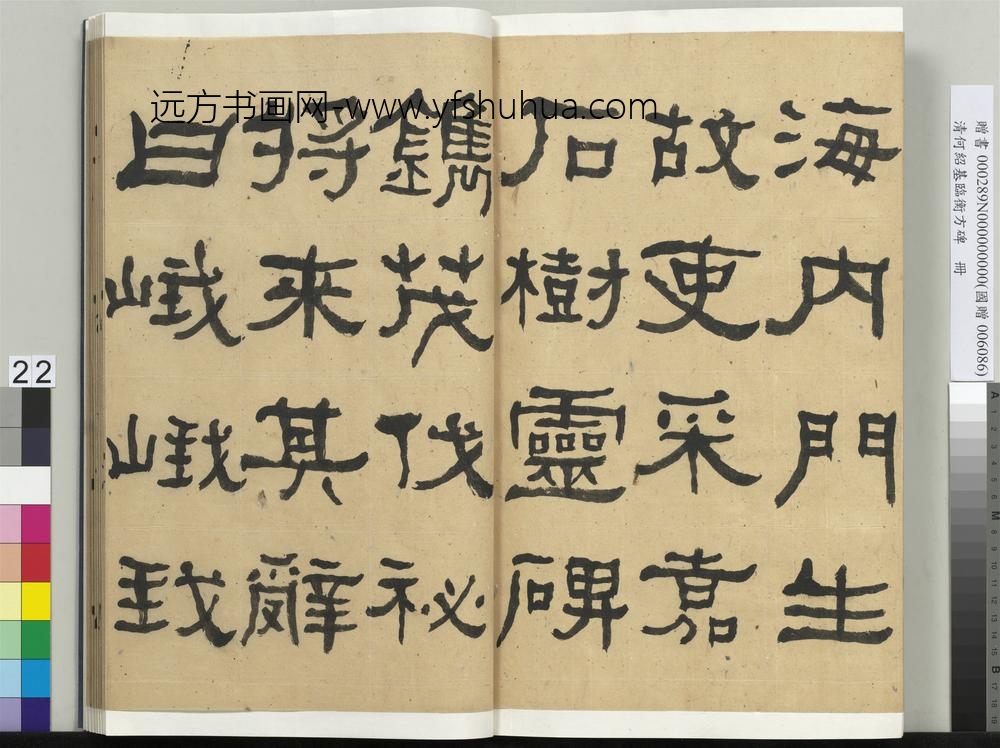 远方书画网-www.yfshuhua.com
海内門生
故吏采嘉
石樹靈碑
鐫茂伐祕
将来其辭
曰峨峨我
贈書 000289N000000000(國贈 006086)
清何紹基臨衡方碑 冊
22
A
M
B